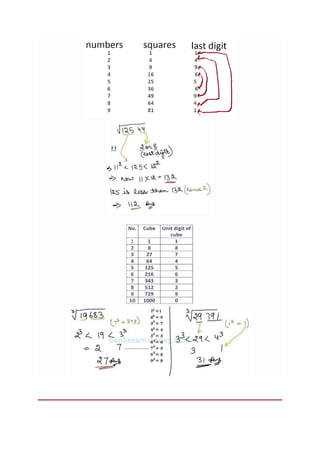 numbers squares last digit
1 1 1
2 4 4
3 9 9
4 16 6
5 25 5
6 36 6
7 49 9
8 64 4
9 81 1
√12544
11 2 or 8
(last digit)
→ 11² < 125 < 12²
→ Now 11×12 = 132
125 is less than 132
→ 112 Ans
No. Cube Unit digit of cube
1 1 1
2 8 8
3 27 7
4 64 4
5 125 5
6 216 6
7 343 3
8 512 2
9 729 9
10 1000 0
1³ = 1
7³ = 3
8³ = 2
9³ = 9
³√19683
(7³ = 343)
2³ < 19 < 3³
= 2 7
27 Ans
³√29791
(1³ = 1)
3³ < 29 < 4³
3 1
31 Ans